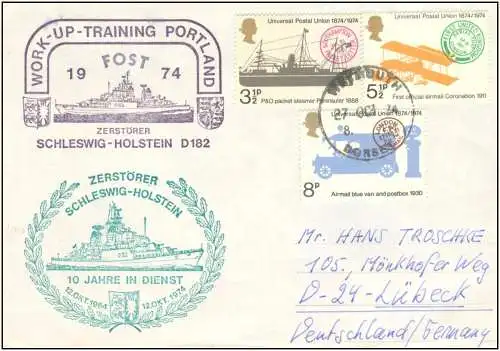 WORK-UP-TRAINING PORTLAND
FOST
19 74
ZERSTÖRER
SCHLESWIG-HOLSTEIN D182
ZERSTÖRER
SCHLESWIG-HOLSTEIN
10 JAHRE IN DIENST
12.OKT.1964 12.OKT.1974
Universal Postal Union 1874/1974
3½P
P&O packet steamer Peninsular 1888
Universal Postal Union 1874/1974
5½P
First official airmail Coronation 1911
WEYMOUTH
27 OCT 74
DORSET
Universal Postal Union 1874/1974
8P
Airmail blue van and postbox 1930
Mr. HANS TROSCHKE
105, Mönkhofer Weg
D-24-Lübeck
Deutschland/Germany